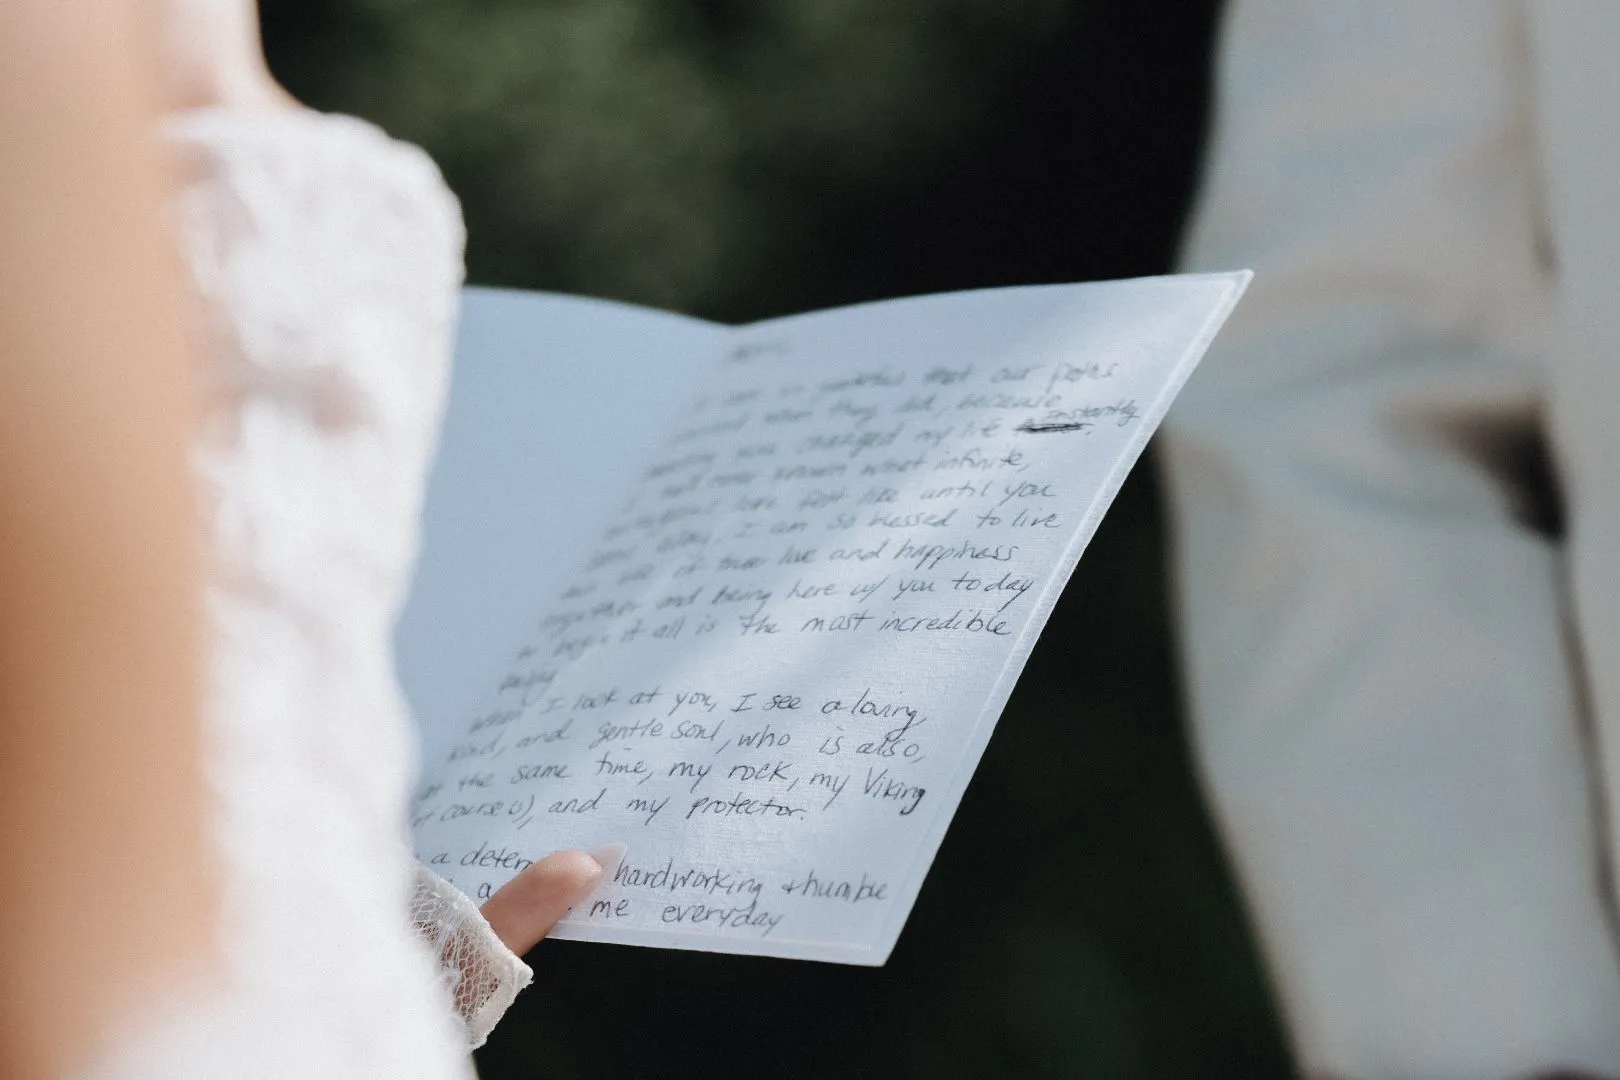 that our paths
when they did, because
you changed my life instantly.
known what infinite,
love felt like until you
I am so blessed to live
of true love and happiness
together and being here w/ you today
to begin it all is the most incredible
when I look at you, I see a loving,
kind, and gentle soul, who is also,
at the same time, my rock, my Viking
of course (s), and my protector.
a deter hardworking + humble
a me everyday